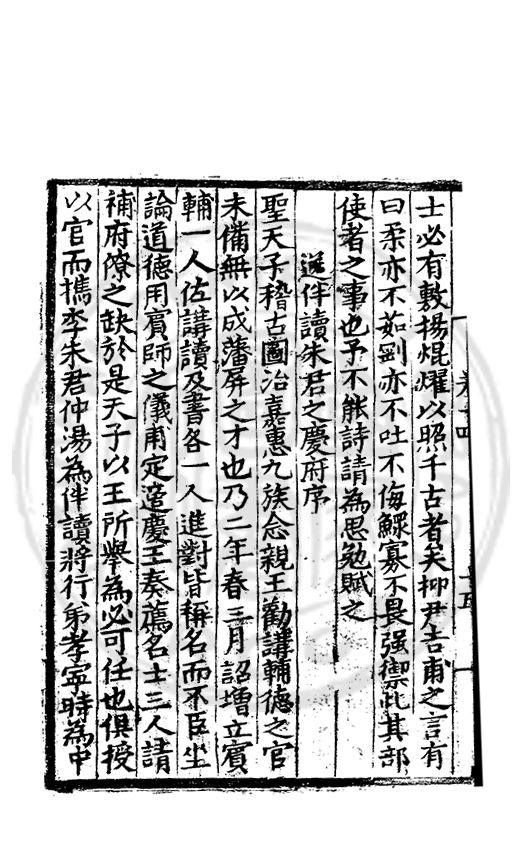 士必有敷揚焜燿以照千古者矣抑尹吉甫之言有
曰柔亦不茹剛亦不吐不侮鰥寡不畏强禦此其部
使者之事也予不能詩請為思勉賦之
送伴讀朱君之慶府序
聖天子稽古圖治嘉惠九族念親王勸講輔德之官
未備無以成藩屏之才也乃二年春三月詔增立賓
輔一人佐講讀及書各一人進對皆稱名而不臣坐
論道德用賓師之儀甫定慶王奏薦名士三人請
補府僚之缺於是天子以王所舉為必可任也俱授
以官而檇李朱君仲湯為伴讀將行弟孝寧時為中